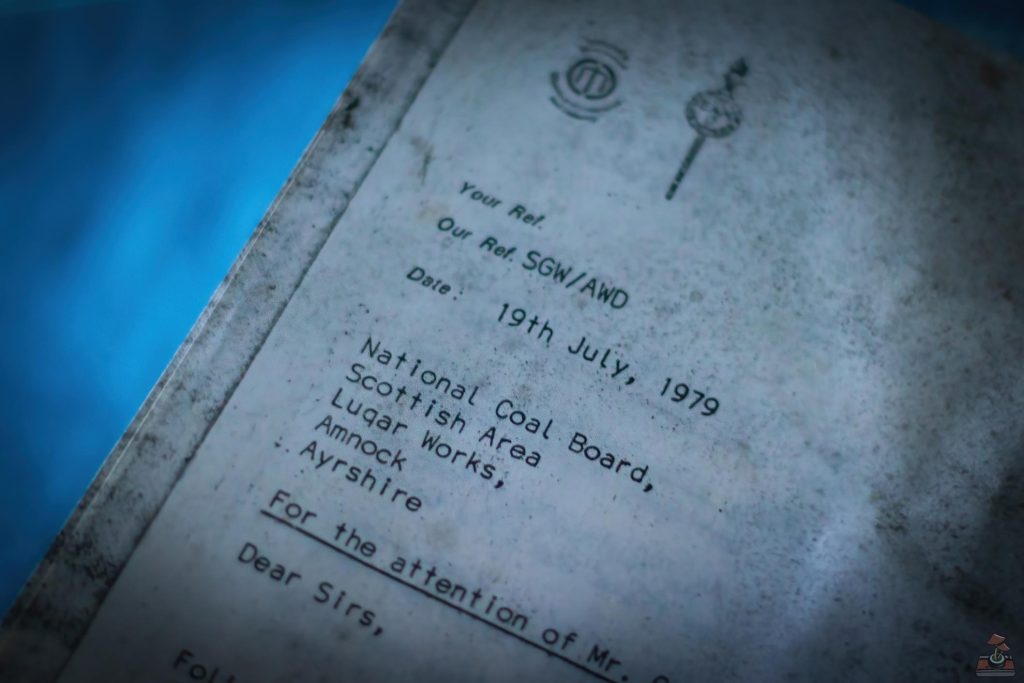 Your Ref.
Our Ref. SGW/AWD
Date: 19th July, 1979
National Coal Board,
Scottish Area
Lugar Works,
Amnock
Ayrshire
For the attention of Mr.
Dear Sirs,